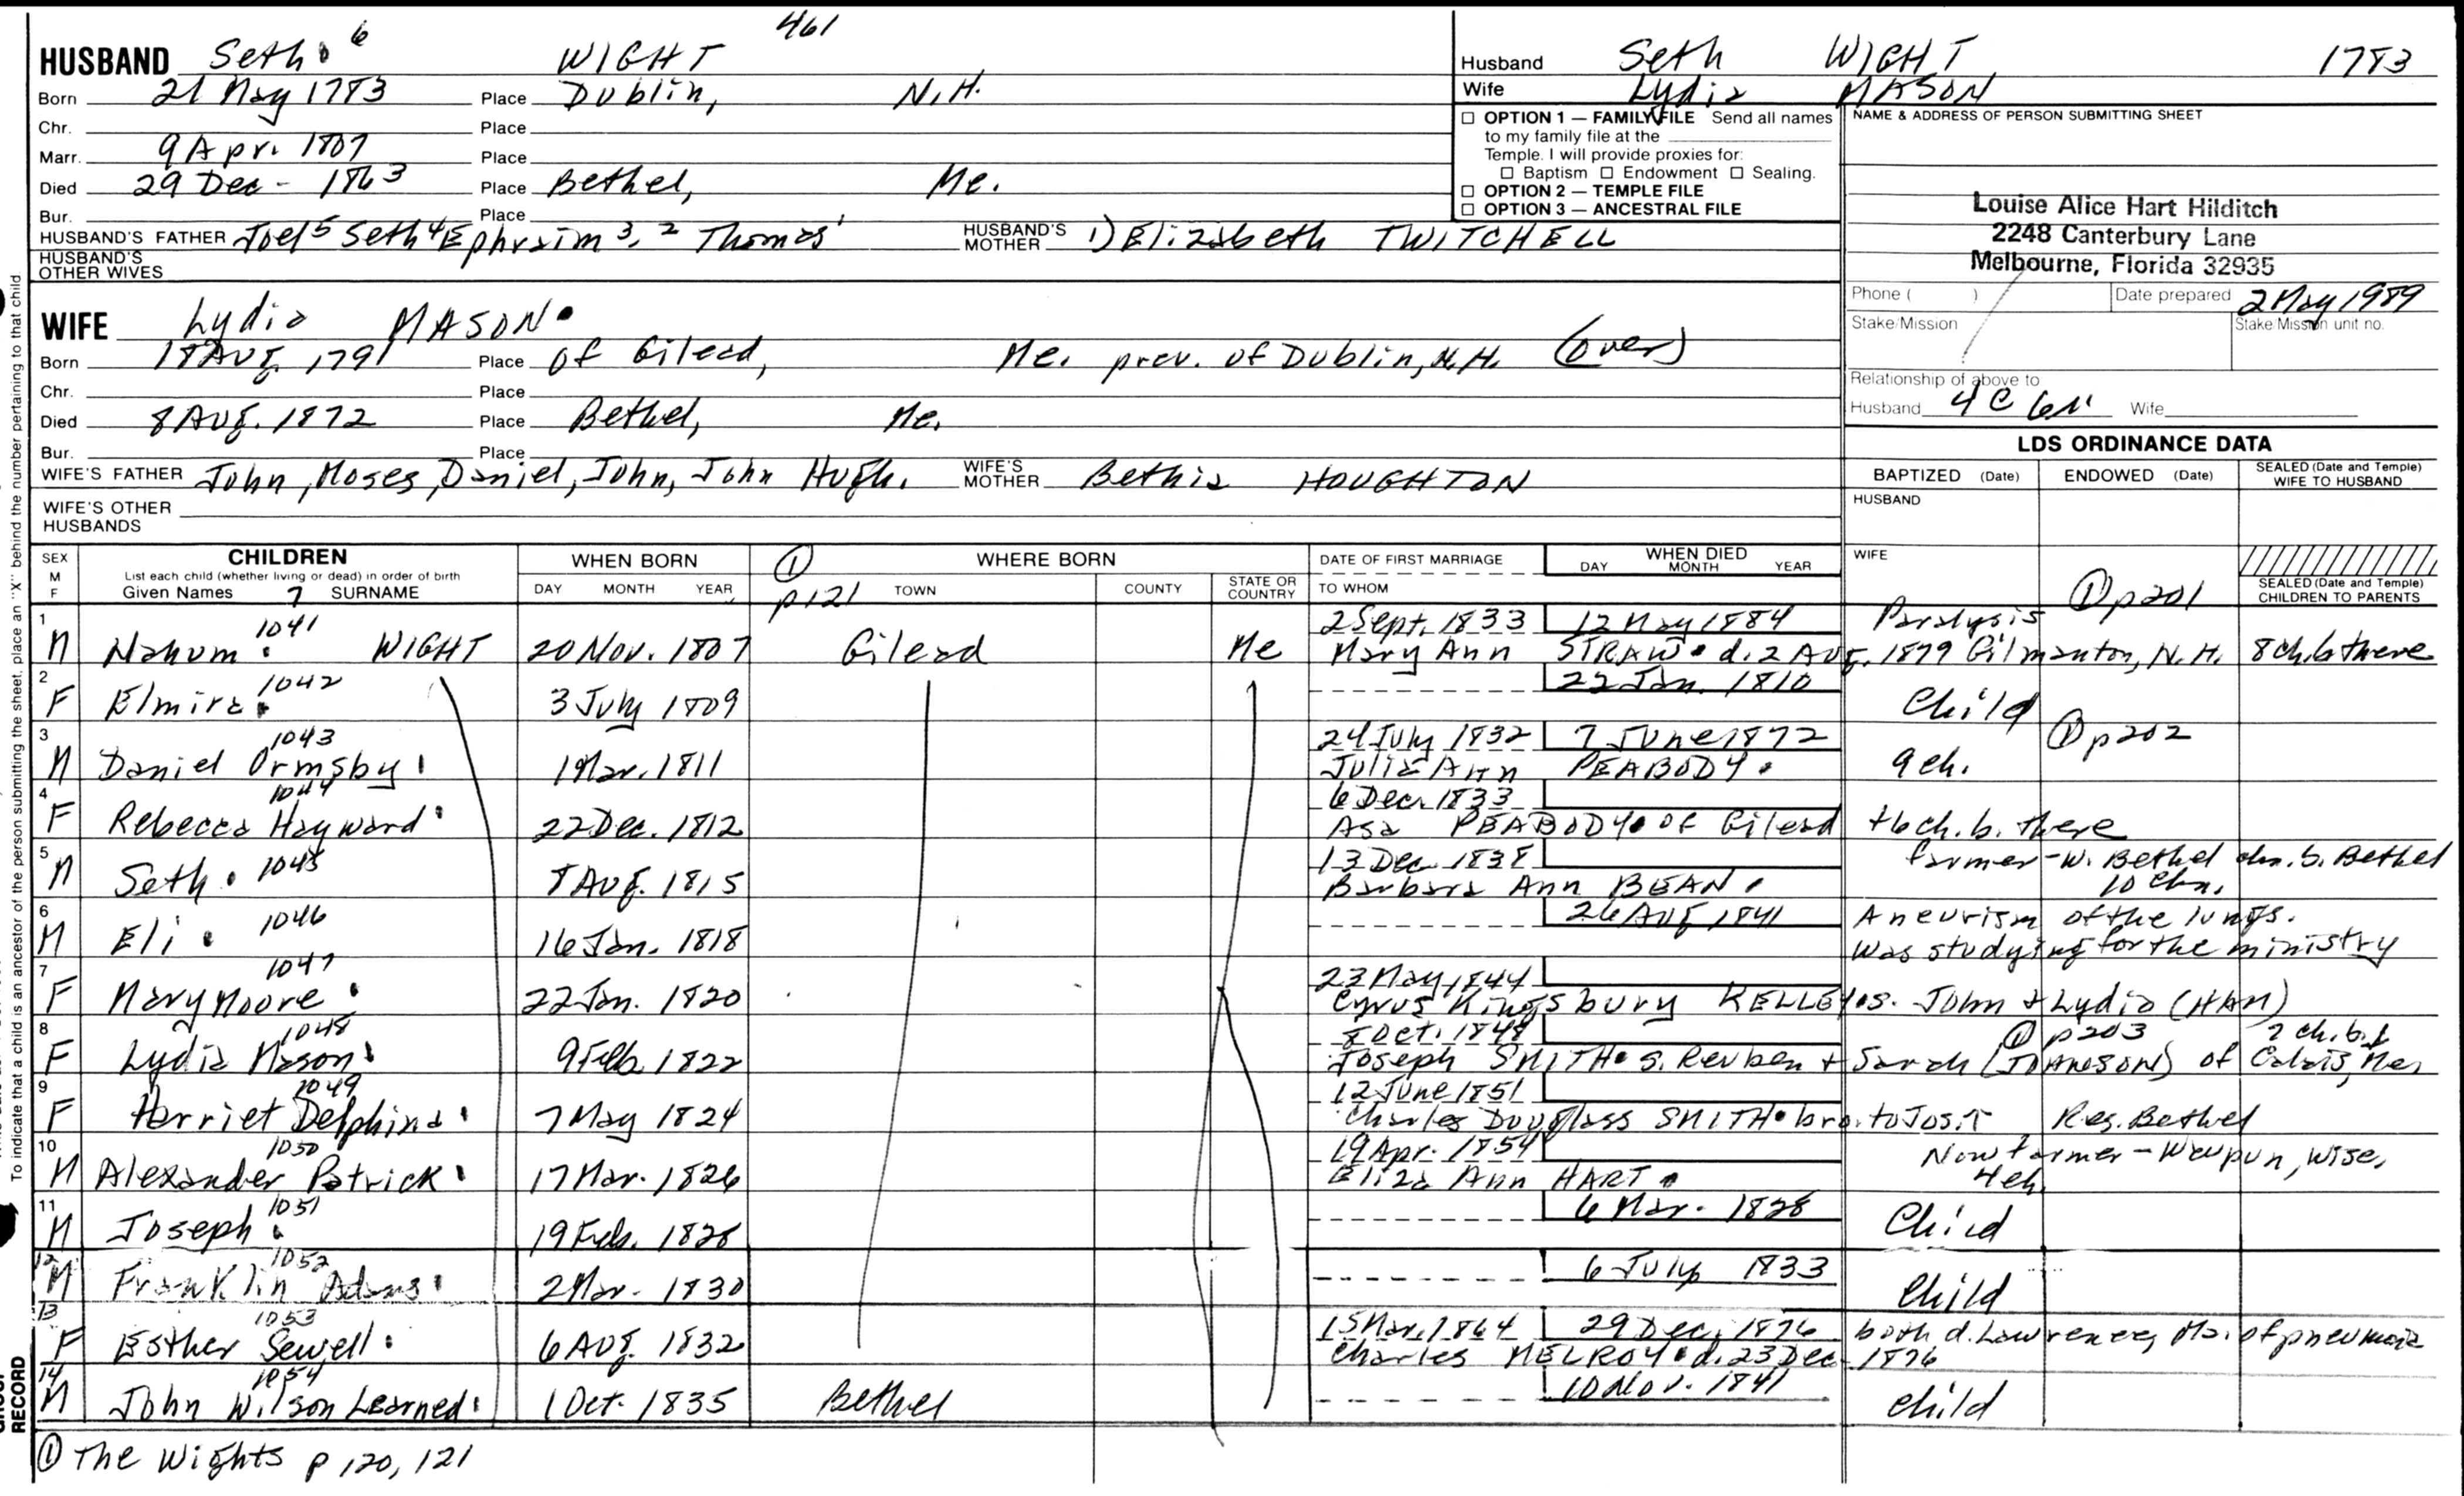 461
HUSBAND Seth 6 WIGHT
Born 21 May 1783 Place Dublin, N.H.
Chr. Place
Marr. 9 Apr. 1807 Place
Died 29 Dec - 1863 Place Bethel, Me.
Bur. Place
HUSBAND'S FATHER Joel 5 Seth 4 Ephraim 3, 2 Thomas 1 HUSBAND'S MOTHER 1) Elizabeth TWITCHELL
HUSBAND'S OTHER WIVES
Husband Seth WIGHT 1783
Wife Lydia MASON
☐ OPTION 1 — FAMILY FILE Send all names
to my family file at the
Temple. I will provide proxies for:
☐ Baptism ☐ Endowment ☐ Sealing.
☐ OPTION 2 — TEMPLE FILE
☐ OPTION 3 — ANCESTRAL FILE
NAME & ADDRESS OF PERSON SUBMITTING SHEET
Louise Alice Hart Hilditch
2248 Canterbury Lane
Melbourne, Florida 32935
Phone ( ) Date prepared 2 May 1989
Stake/Mission Stake/Mission unit no.
Relationship of above to
Husband 4C 6r Wife
WIFE Lydia MASON
Born 18 Aug. 1791 Place of Gilead, Me. prev. of Dublin, N.H. (over)
Chr. Place
Died 8 Aug. 1872 Place Bethel, Me.
Bur. Place
WIFE'S FATHER John, Moses, Daniel, John, John Hugh. WIFE'S MOTHER Bethia HOUGHTON
WIFE'S OTHER HUSBANDS
LDS ORDINANCE DATA
BAPTIZED (Date) ENDOWED (Date) SEALED (Date and Temple) WIFE TO HUSBAND
HUSBAND
WIFE
① p201
SEALED (Date and Temple) CHILDREN TO PARENTS
SEX M F
CHILDREN
List each child (whether living or dead) in order of birth
Given Names 7 SURNAME
WHEN BORN
DAY MONTH YEAR
① p121
WHERE BORN
TOWN COUNTY STATE OR COUNTRY
DATE OF FIRST MARRIAGE
TO WHOM
WHEN DIED
DAY MONTH YEAR
1 M Nahum 1041 WIGHT 20 Nov. 1807 Gilead Me 2 Sept. 1833 12 May 1884 Paralysis
Mary Ann STRAW d. 2 Aug. 1879 Gilmanton, N.H. 8 ch. b there
2 F Elmira 1042 3 July 1809 22 Jan. 1810 Child
3 M Daniel Ormsby 1043 1 Mar. 1811 24 July 1832 7 June 1872 ① p202
Julia Ann PEABODY 9 ch.
4 F Rebecca Hayward 1044 22 Dec. 1812 6 Dec. 1833
Asa PEABODY of Gilead +6 ch. b. there
5 M Seth 1045 8 Aug. 1815 13 Dec. 1838 farmer - W. Bethel chn. b. Bethel
Barbara Ann BEAN 10 chn.
6 M Eli 1046 16 Jan. 1818 26 Aug 1841 Aneurism of the lungs.
Was studying for the ministry
7 F Mary Moore 1047 22 Jan. 1820 23 May 1844
Cyrus Kingsbury KELLEY s. John & Lydia (HAM)
8 F Lydia Mason 1048 9 Feb. 1822 8 Oct. 1848 ① p203 2 ch. b.
Joseph SMITH s. Reuben + Sarah of Calais, Me.
9 F Harriet Delphina 1049 7 May 1824 12 June 1851
Charles Douglass SMITH bro. to Jos. Res. Bethel
10 M Alexander Patrick 1050 17 Mar. 1826 19 Apr. 1854 Now farmer - Waupun, Wisc.
Eliza Ann HART 4 ch.
11 M Joseph 1051 19 Feb. 1828 6 Mar. 1828 Child
12 M Franklin Adams 1052 2 Mar. 1830 6 July 1833 Child
13 F Esther Sewell 1053 6 Aug. 1832 15 Mar. 1864 29 Dec. 1876 both d. Lawrence, Ma. of pneumonia
Charles MELROY d. 23 Dec 1876
14 M John Wilson Learned 1054 1 Oct. 1835 Bethel 10 Nov. 1841 Child
① The Wights p 120, 121
To indicate that a child is an ancestor of the person submitting the sheet, place an "X" behind the number pertaining to that child
RECORD